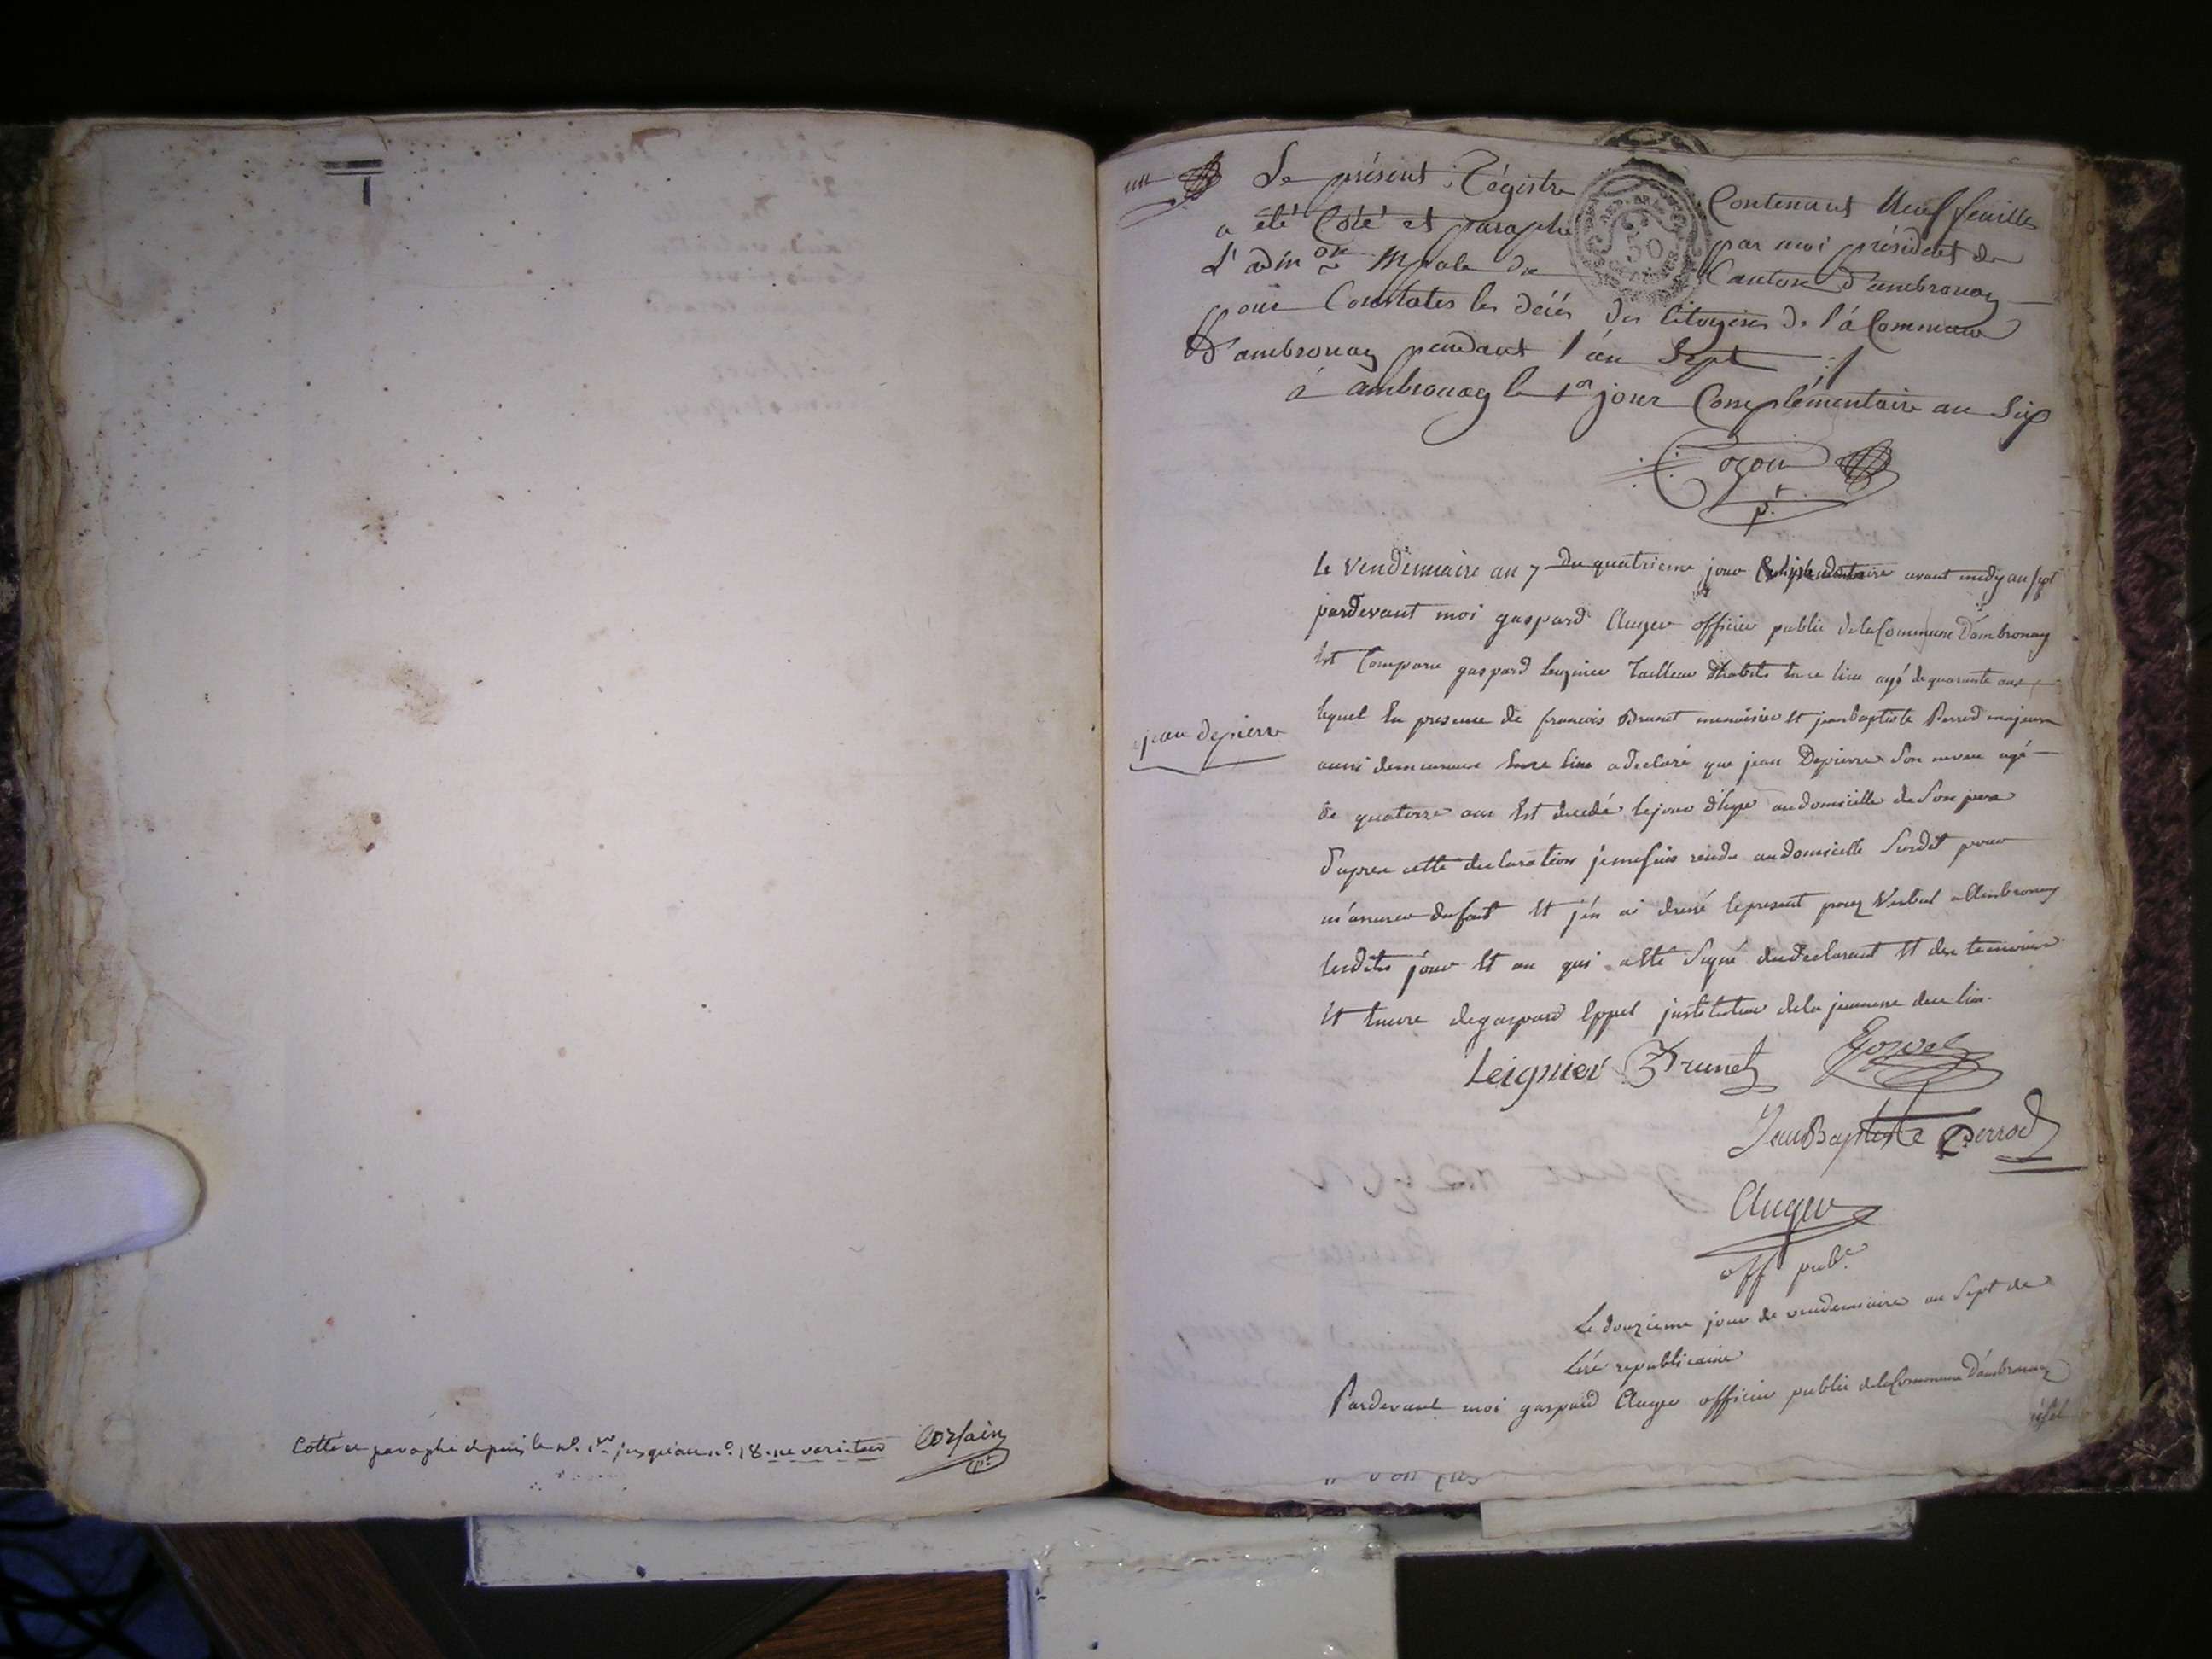 Cotté et paraphé depuis le no. 1er jusqu'au no. 18. ne varietur Corsain
pt
un
Le présent Régistre Contenant Neuf feuilles
a été Coté et paraphé par moi président de
L'admon Mpale du Canton d'ambronay
pour Constater les décés des Citoyens de lá Commune
D'ambronay pendant l'an Sept
á ambronay le 1er jour Complémentaire an Six
Cozon
pt
REP. FRA
50
CENTIMES
jean depierre
le vendemiaire an 7 du quatrieme jour avant midy an sept
pardevant moi gaspard Auger officier public de la Commune Dámbronay
Est Comparu gaspard Leignier Tailleur d'habits en ce lieu agé de quarante ans
lequel En presence de francois Brunet menuisier Et jean baptiste Perrod majeurs
aussi demeurant En ce lieu a declaré que jean Depierre Son neveu agé
de quatorze ans Est decedé le jour d'hyer au domicille de Son pere
D'apres cette declaration je me suis rendu au domicille Susdit pour
m'assurer du fait Et j'én ai dressé le present procez Verbal a Ambronay
lesdits jour Et an qui a Eté Signé du declarant Et des temoins
Et Encore de gaspard instituteur de la jeunesse de ce lieu.
Leignier Brunet
Jean Baptiste Perrod
Auger
off pubc
Le douzieme jour de vendemiaire an Sept de
Lére republicaine
Pardevant moi gaspard Auger officier public de la Commune Dámbronay